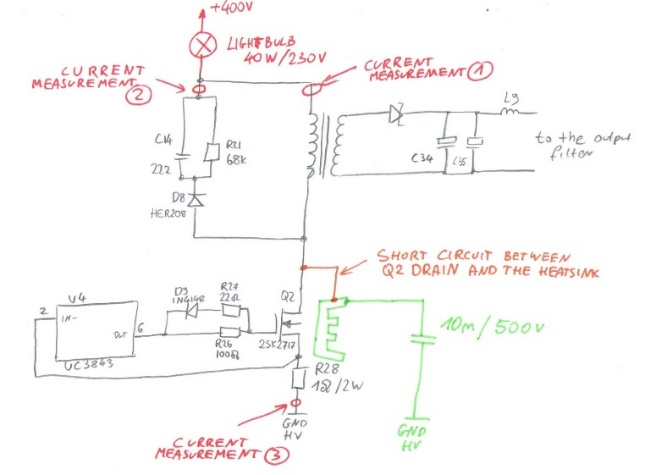 +400V
LIGHTBULB
40W/230V
CURRENT
MEASUREMENT 1
CURRENT
MEASUREMENT
2
C14
222
R21
68K
D8
HER208
C34
L9
to the output
filter
SHORT CIRCUIT BETWEEN
Q2 DRAIN AND THE HEATSINK
10m/500V
GND
HV
2
U4
IN-
OUT
6
UC3843
D3
1N4148
R27
22Ω
R26
100Ω
Q2
2SK2717
R28
1Ω/2W
GND
HV
CURRENT
MEASUREMENT 3